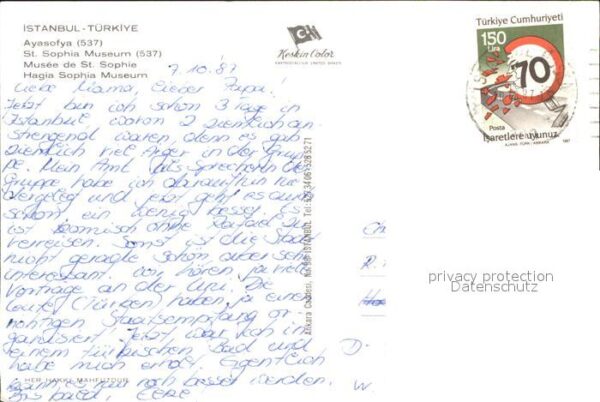 İSTANBUL - TÜRKİYE
Ayasofya (537)
St. Sophia Museum (537)
Musée de St. Sophie
Hagia Sophia Museum
Keskin Color
7.10.87
Liebe Mama, Lieber Papa!
Jetzt bin ich schon 3 Tage in
Istanbul wovon 2 ziemlich an-
strengend waren, denn es gab
ziemlich viel Ärger in der Grup-
pe. Mein Amt als Sprecherin der
Gruppe habe ich daraufhin nie-
dergelegt und jetzt geht es auch
schon ein wenig besser. Es
ist komisch ohne
verreisen. Sonst ist die Stadt
nicht gerade schön, aber sehr
interessant. Wir hören ja viele
Vorträge an der Uni. Die
Leute (Türken) haben ja einen
richtigen Staatsempfang or-
ganisiert. Jetzt war ich in
einem türkischen Bad und
habe mich erholt. Eigentlich
kann es nur noch besser werden.
Bis bald,
HER HAKKI MAHFUZDUR
Ankara Caddesi, No. 98 İSTANBUL Tel:
Türkiye Cumhuriyeti
150
Lira
70
Posta
İşaretlere uyunuz
1987
privacy protection
Datenschutz
D-
W.